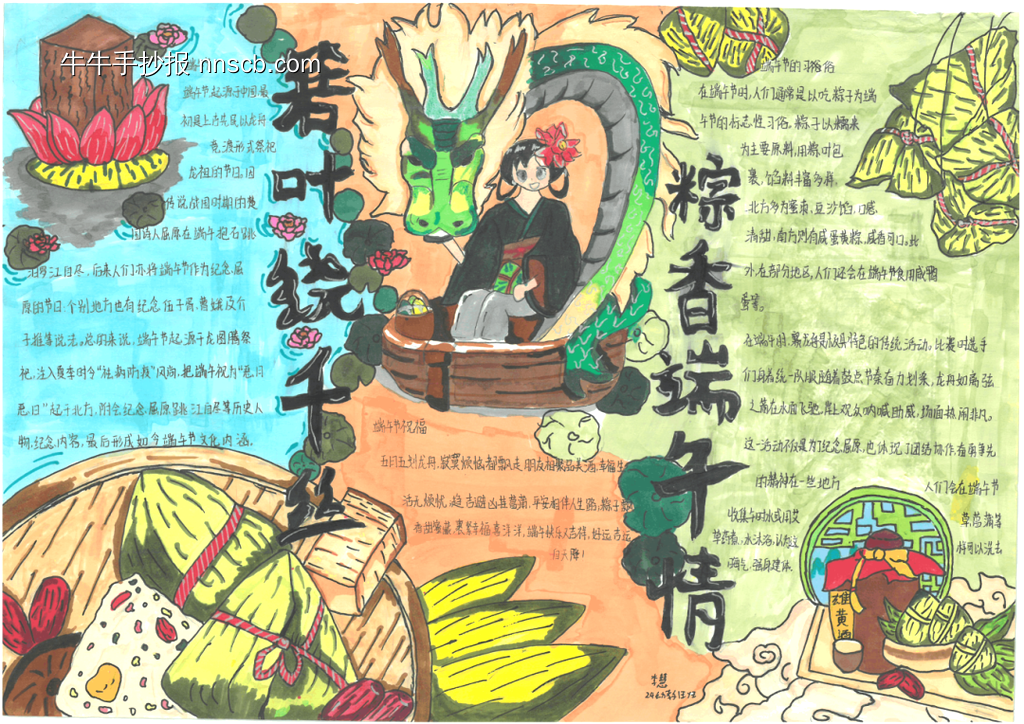 牛牛手抄报 nnscb.com
端午节起源于中国，最
初是上古先民以龙舟
竞渡形式祭祀
龙祖的节日。因
传说战国时期的楚
国诗人屈原在端午抱石跳
汨罗江自尽，后来人们亦将端午节作为纪念屈
原的节日；个别地方也有纪念伍子胥、曹娥及介
子推等说法。总的来说，端午节起源于龙图腾祭
祀，注入夏季时令“祛病防疫”风尚，把端午视为“恶月
恶日”起于北方，附会纪念屈原跳江自尽等历史人
物纪念内容，最后形成如今端午节文化内涵。
箬叶绕千丝
粽香端午情
端午节祝福
五月五划龙舟，寂寞烦恼都飘走
朋友相聚品美酒，幸福生
活无烦忧，趋吉避凶挂菖蒲，平安相伴人生路，粽子
香甜蜜蜜，裹紧幸福喜洋洋，端午快乐人吉祥，好运吉运
拉大降！
端午节的习俗
在端午节时，人们通常是以吃粽子为端
午节的标志性习俗。粽子以糯米
为主要原料，用粽叶包
裹，馅料丰富多样，
北方多为蜜枣、豆沙馅，口感
清甜，南方则有咸蛋黄粽，咸香可口。此
外，在部分地区，人们还会在端午节食用咸鸭
蛋等。
在端午时，赛龙舟是极具特色的传统活动。比赛时选手
们身着统一队服，随着鼓点节奏奋力划桨，龙舟如离弦
之箭在水面飞驰，岸上观众呐喊助威，场面热闹非凡。
这一活动不仅是为了纪念屈原，也体现了团结协作、奋勇争先
的精神在一些地方
人们会在端午节
收集午时水或用艾
草菖蒲等
草药煮水沐浴，认为这
样可以洗去
晦气，强身健体。
雄黄酒